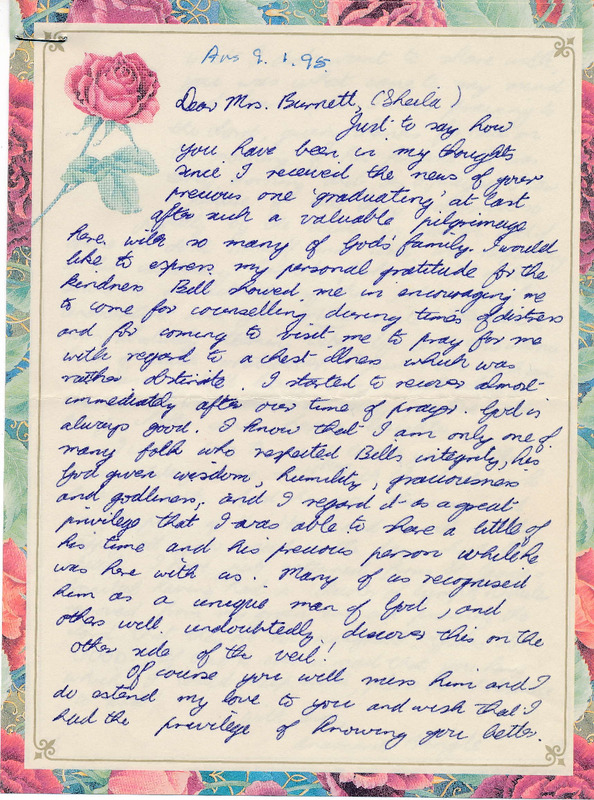 Ans 9.1.95
Dear Mrs. Burnett, (Sheila)
Just to say how
you have been in my thoughts
since I received the news of your
precious one 'graduating' at last
after such a valuable pilgrimage
here with so many of God's family. I would
like to express my personal gratitude for the
kindness Bill showed me in encouraging me
to come for counselling during times of distress
and for coming to visit me to pray for me
with regard to a chest illness which was
rather obstinate. I started to recover almost
immediately after our time of prayer. God is
always good. I know that I am only one of
many folk who respected Bills integrity, his
God given wisdom, humility, graciousness
and godliness, and I regard it as a great
privilege that I was able to share a little of
his time and his precious person while he
was here with us. Many of us recognised
him as a unique man of God, and
others will undoubtedly discover this on the
other side of the veil!
Of course you will miss him and I
do extend my love to you and wish that I
had the privilege of knowing you better.